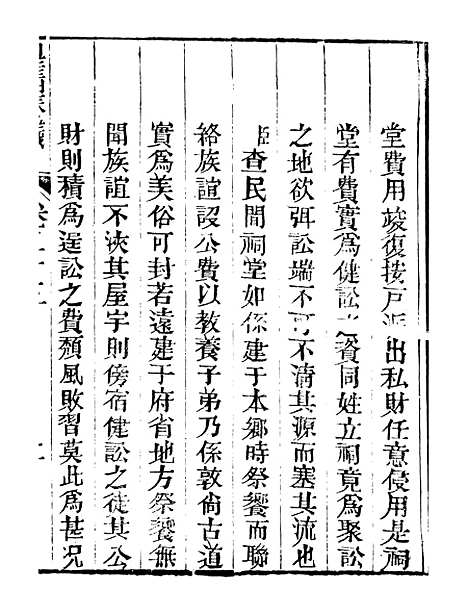 堂費用竣復按戶派出私財任意侵用是祠
堂有費實爲健訟之資同姓立祠竟爲聚訟
之地欲弭訟端不可不清其源而塞其流也
臣查民間祠堂如係建于本鄉時祭饗而聯
絡族誼設公費以教養子弟乃係敦尙古道
實爲美俗可封若遠建于府省地方祭饗無
聞族誼不浹其屋宇則傍宿健訟之徒其公
財則積爲逞訟之費頹風敗習莫此爲甚况